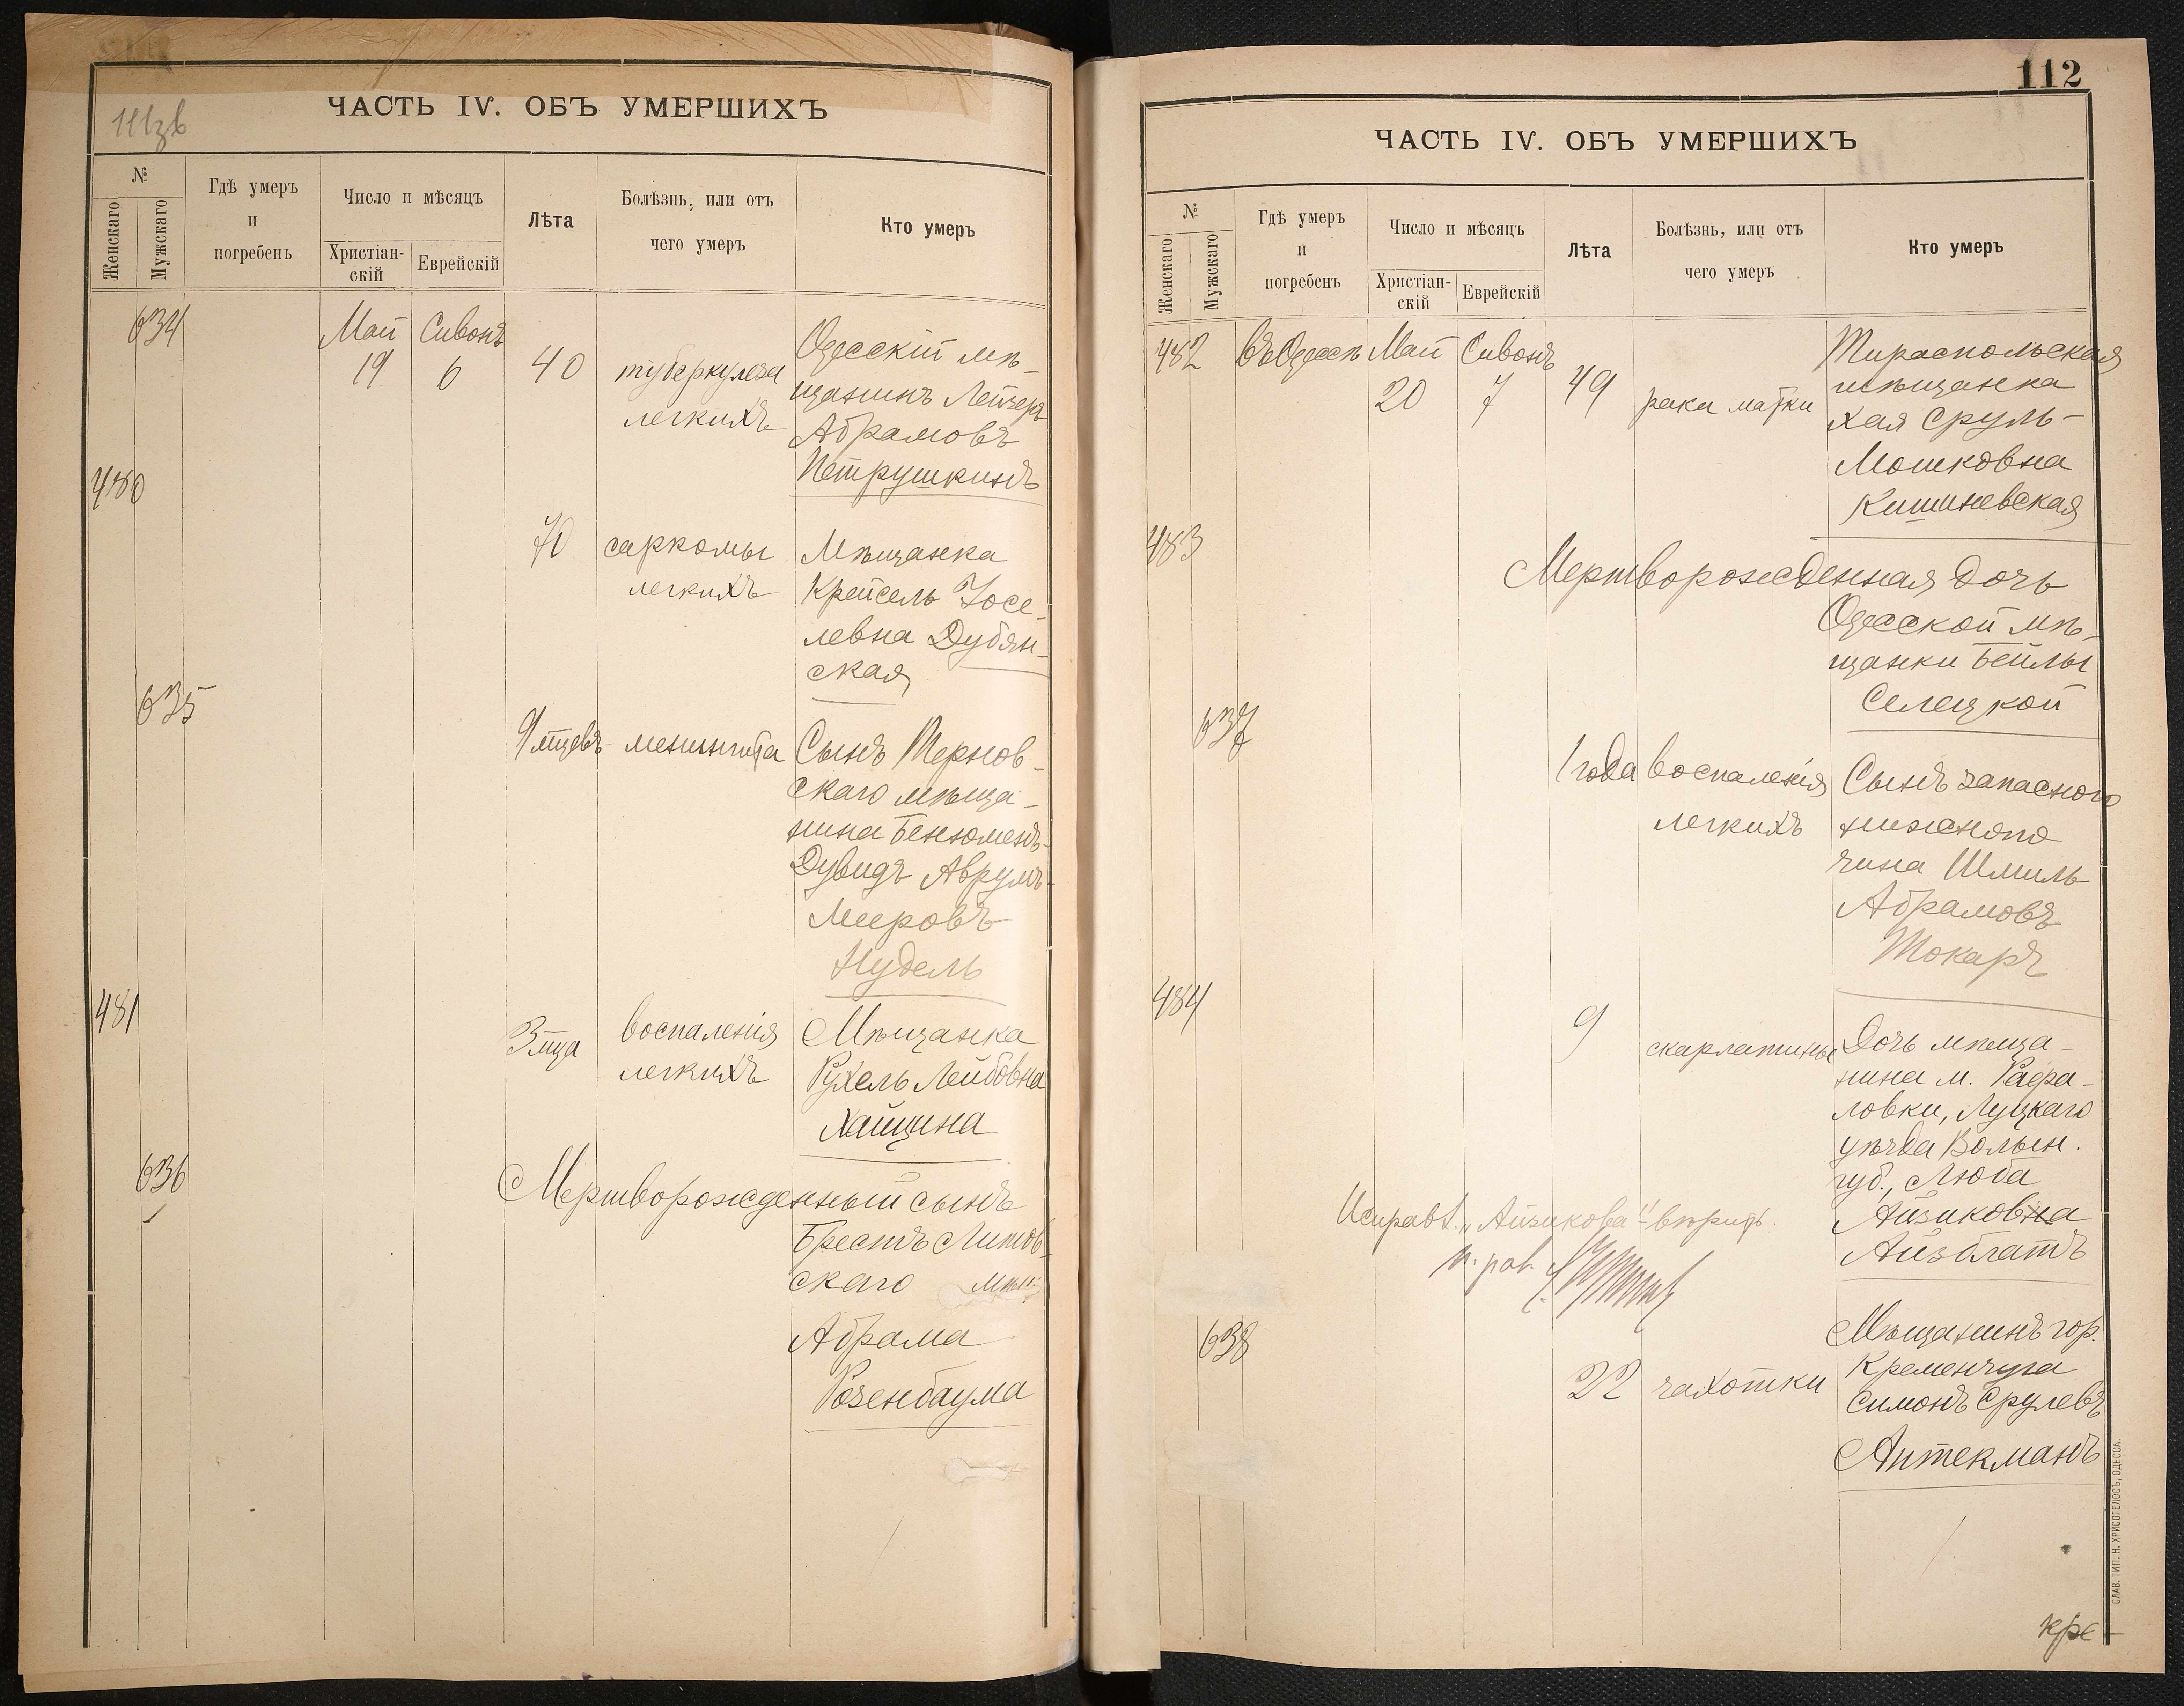 111зв
ЧАСТЬ IV. ОБЪ УМЕРШИХЪ
№
Женскаго
Мужскаго
Гдѣ умеръ
и
погребенъ
Число и мѣсяцъ
Христіан-
скій
Еврейскій
Лѣта
Болѣзнь, или отъ
чего умеръ
Кто умеръ
634
Май Сивонъ
19 6 40 туберкулеза
легкихъ
Одесскій мѣ-
щанинъ Лейзеръ
Абрамовъ
Петрушкинъ
480
70 саркомы
легкихъ
Мѣщанка
Крейсель Іосе-
левна Дубян-
ская
635
9 мцевъ менингита
Сынъ Тернов-
скаго мѣща-
нина Бенюменъ-
Дувидъ Аврумъ-
Мееровъ
Нудель
481
3 мца воспаленія
легкихъ
Мѣщанка
Рухель Лейбовна
Хайцина
636
Мертворожденный сынъ
Брестъ Литов-
скаго мѣщ.
Абрама
Розенбаума
112
ЧАСТЬ IV. ОБЪ УМЕРШИХЪ
№
Женскаго
Мужскаго
Гдѣ умеръ
и
погребенъ
Число и мѣсяцъ
Христіан-
скій
Еврейскій
Лѣта
Болѣзнь, или отъ
чего умеръ
Кто умеръ
482 въ Одессѣ Май Сивонъ
20 7 49 рака матки
Тираспольская
мѣщанка
Хая Сруль-
Мошковна
Кишиневская
483
Мертворожденная дочь
Одесской мѣ-
щанки Бейлы
Селецкой
637
1 года воспаленія
легкихъ
Сынъ запасного
нижняго
чина Шмиль
Абрамовъ
Токаръ
484
9 скарлатины
Дочь мѣща-
нина м. Рафа-
ловки, Луцкаго
уѣзда Волын.
губ., Люба
Айзиковна
Айзблатъ
Исправл. „Айзикова" вѣрить.
п. рав.
638
22 чахотки
Мѣщанинъ гор.
Кременчуга
Симонъ Срулевъ
Аптекманъ
СЛАВ. ТИП. Н. ХРИСОГЕЛОСЪ, ОДЕССА.
кре-